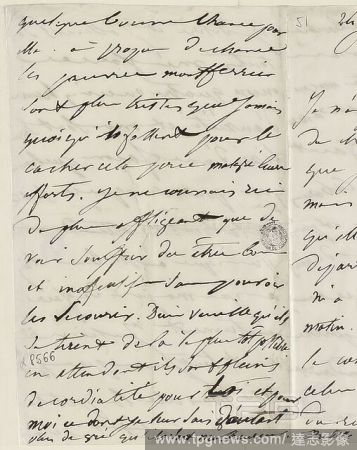 quelque bonne chance pour
elle. à propos de chance
les pauvres montferrier
sont plus tristes que jamais
quoiqu'ils fassent pour le
cacher cela perce malgré leurs
efforts. je ne connais rien
de plus affligeant que de
voir souffrir des êtres bons
et inoffensifs sans pouvoir
les secourir. Dieu veuille qu'ils
se tirent de là le plus tôt possible
en attendant ils sont pleins
de cordialité pour toi et pour
moi ce dont je leur sais d'autant
plus de gré qu
51
je n'ai
de
que
mais
qu'il
déjà
n'a
matin.
le
celui
P566
www.tpgnews.com / 達志影像